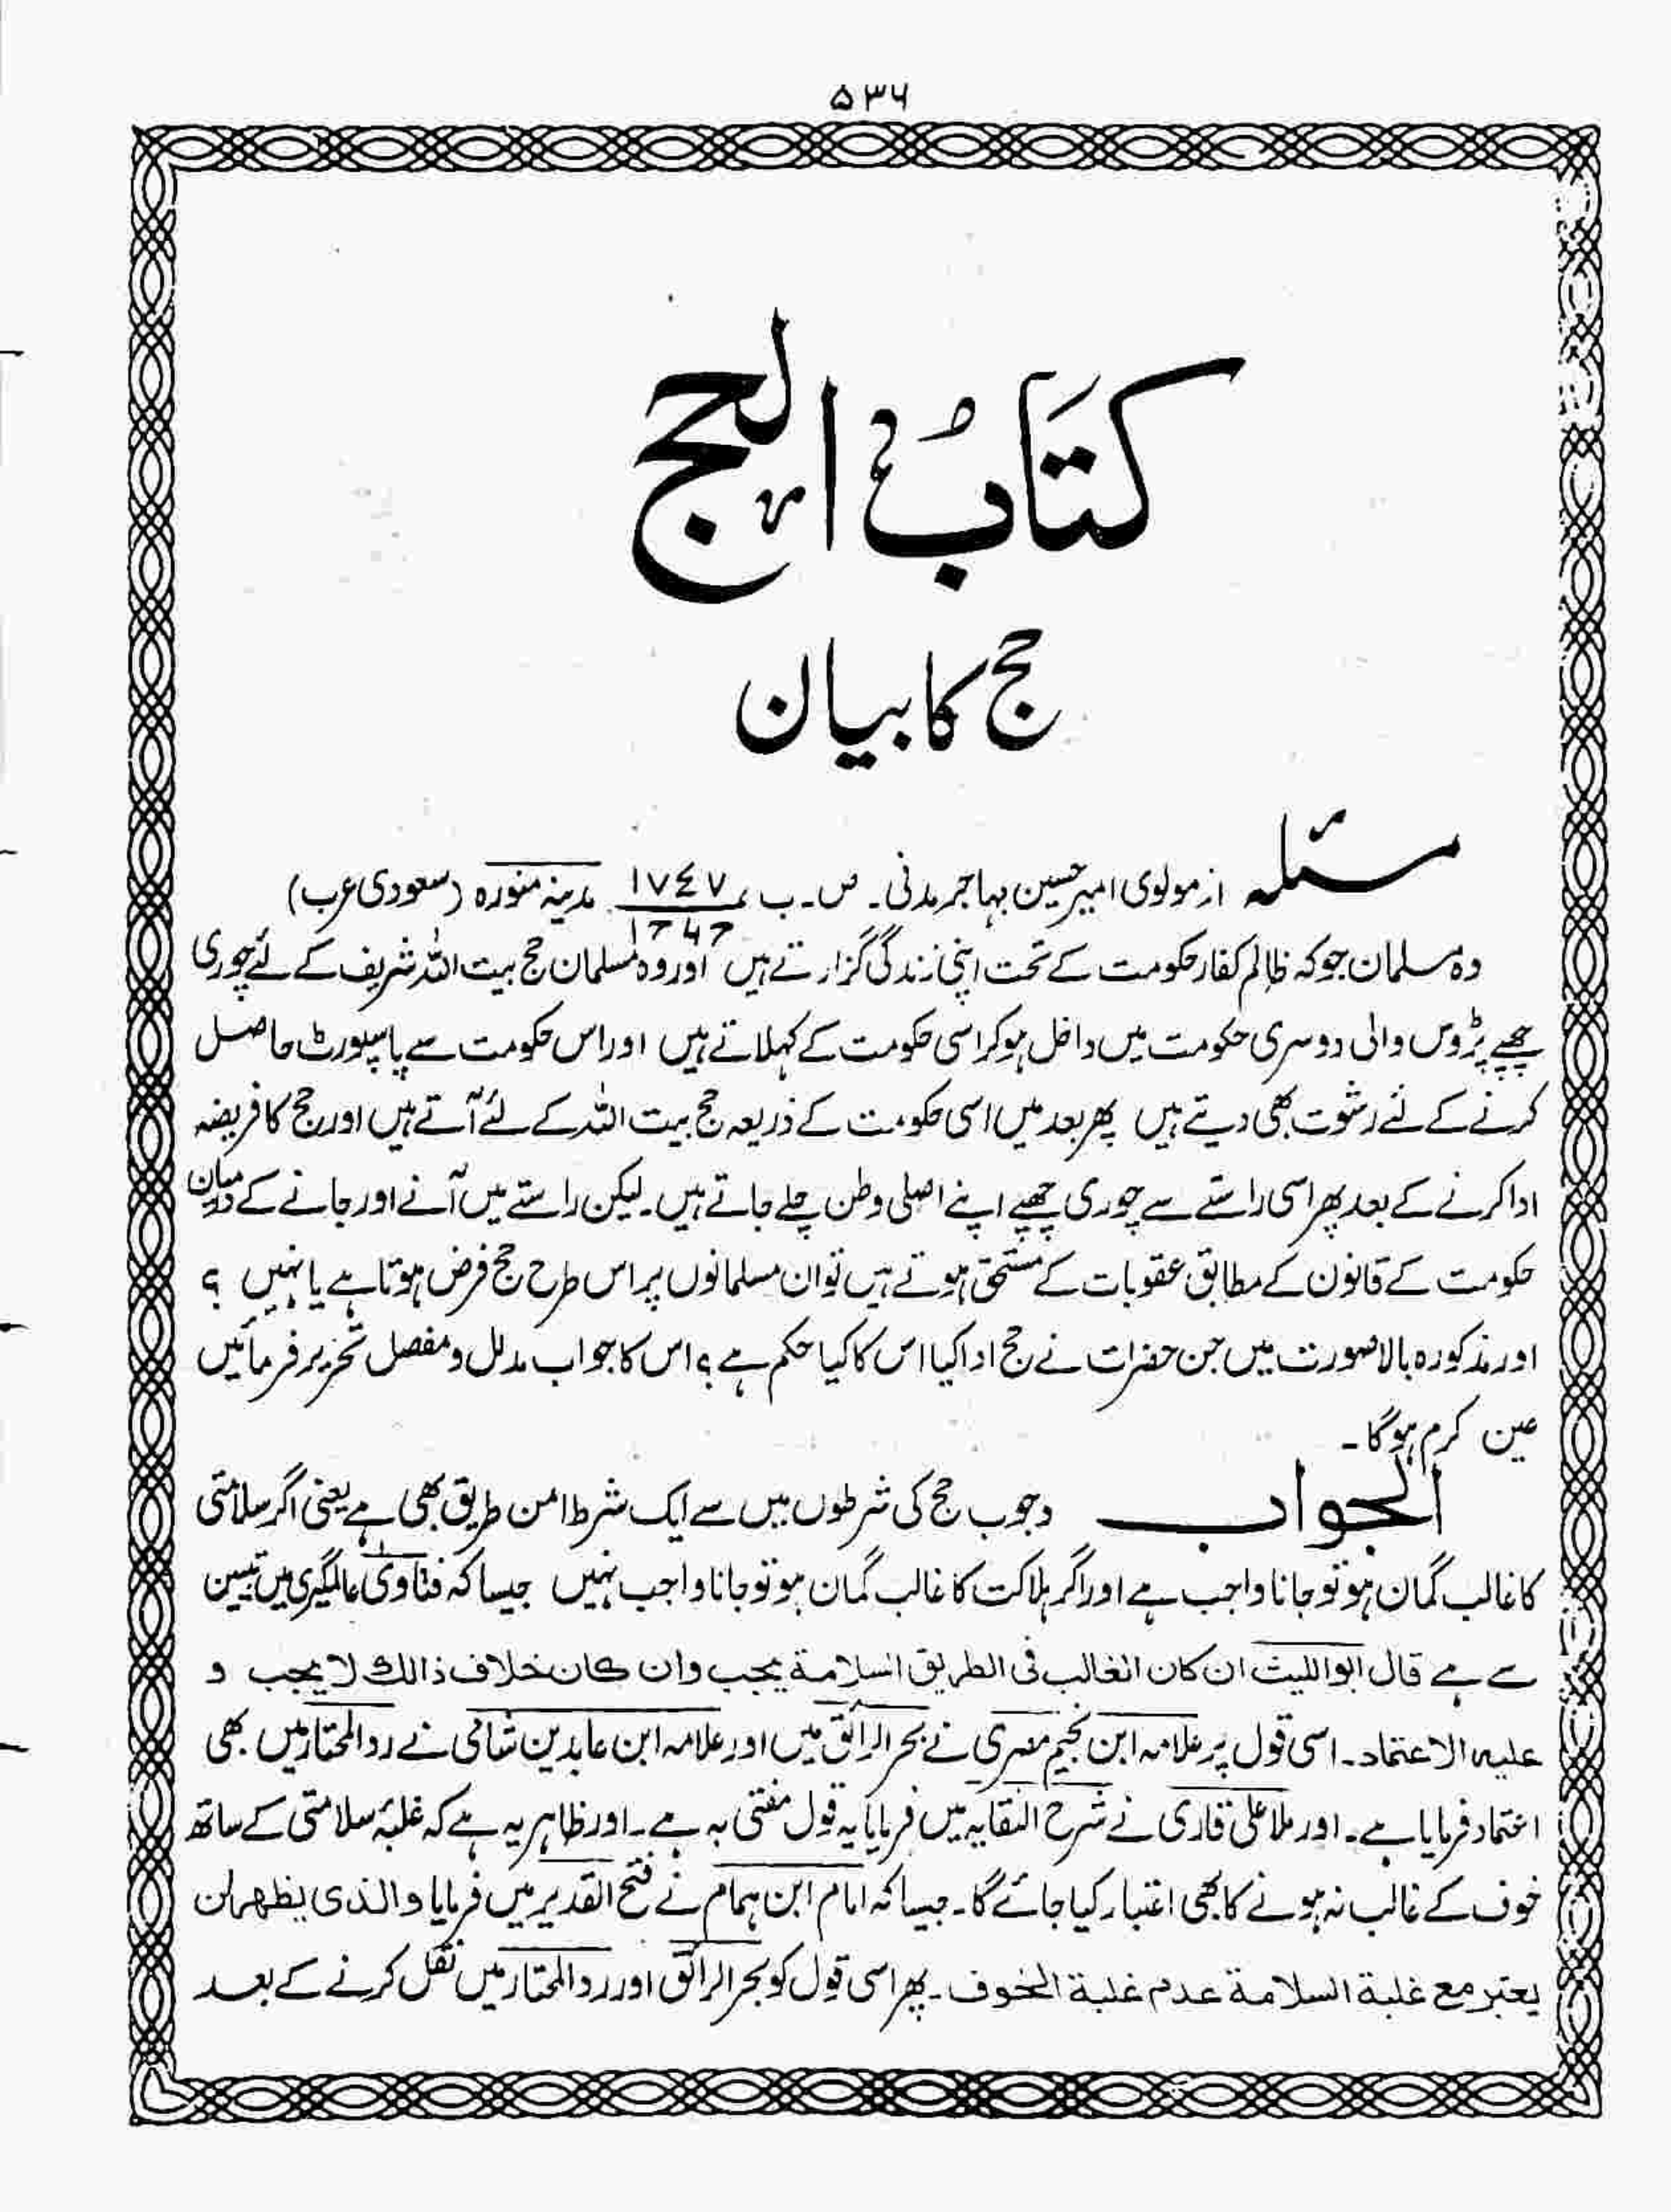 ۵۳۶
کتَابُ الحج
حج کا بیان
مسئلہ از مولوی امیر حسین مہاجر مدنی۔ ص۔ ب ۱۷٤۷ / ۱۷۴۷ مدینہ منورہ (سعودی عرب)
وہ مسلمان جو کہ ظالم کفار حکومت کے تحت اپنی زندگی گزارتے ہیں اور وہ مسلمان حج بیت اللہ شریف کے لئے چوری
چھپے پڑوس والی دوسری حکومت میں داخل ہو کر اسی حکومت کے کہلاتے ہیں اور اس حکومت سے پاسپورٹ حاصل
کرنے کے لئے رشوت بھی دیتے ہیں پھر بعد میں اسی حکومت کے ذریعہ حج بیت اللہ کے لئے آتے ہیں اور حج کا فریضہ
ادا کرنے کے بعد پھر اسی راستے سے چوری چھپے اپنے اصلی وطن چلے جاتے ہیں۔ لیکن راستے میں آنے اور جانے کے درمیان
حکومت کے قانون کے مطابق عقوبات کے مستحق ہوتے ہیں تو ان مسلمانوں پر اس طرح حج فرض ہوتا ہے یا نہیں ؟
اور مذکورہ بالا صورت میں جن حضرات نے حج ادا کیا اس کا کیا حکم ہے ؟ اس کا جواب مدلل و مفصل تحریر فرمائیں
عین کرم ہوگا۔
الجواب وجوب حج کی شرطوں میں سے ایک شرط امن طریق بھی ہے یعنی اگر سلامتی
کا غالب گمان ہو تو جانا واجب ہے اور اگر ہلاکت کا غالب گمان ہو تو جانا واجب نہیں جیسا کہ فتاویٰ عالمگیری میں تبیین
سے ہے قال ابو اللیث ان کان الغالب فی الطریق السلامۃ یجب وان کان خلاف ذالک لا یجب و
علیہ الاعتماد۔ اسی قول پر علامہ ابن نجیم مصری نے بحر الرائق میں اور علامہ ابن عابدین شامی نے رد المحتار میں بھی
اعتماد فرمایا ہے۔ اور ملا علی قاری نے شرح النقایہ میں فرمایا یہ قول مفتی بہ ہے۔ اور ظاہر یہ ہے کہ غلبۂ سلامتی کے ساتھ
خوف کے غالب نہ ہونے کا بھی اعتبار کیا جائے گا۔ جیسا کہ امام ابن ہمام نے فتح القدیر میں فرمایا والذی یظھر ان
یعتبر مع غلبۃ السلامۃ عدم غلبۃ الخوف۔ پھر اسی قول کو بحر الرائق اور رد المحتار میں نقل کرنے کے بعد